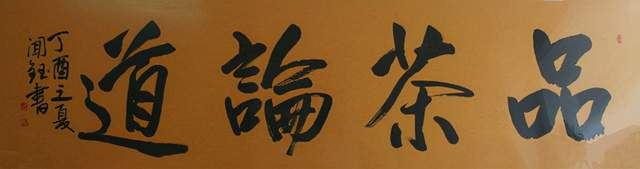 品茶論道
丁酉之夏
闻钰書